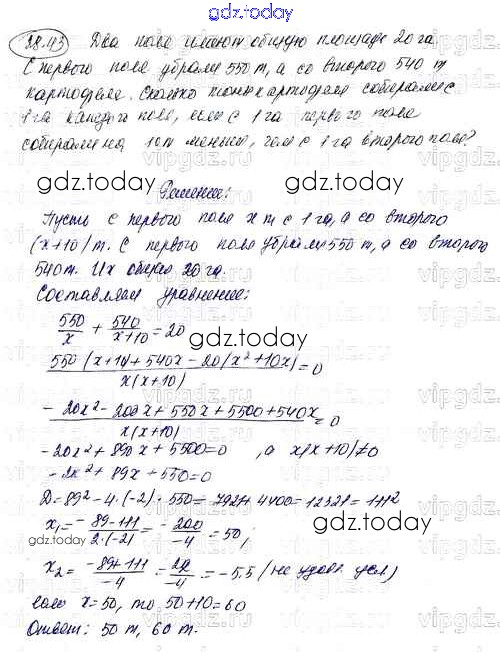 gdz.today
28.43 Два поля имеют общую площадь 20 га.
С первого поля убрали 550 т, а со второго 540 т
картофеля. Сколько тонн картофеля собирали с
1 га каждого поля, если с 1 га первого поля
собирали на 10 т меньше, чем с 1 га второго поля?
gdz.today
Решение:
Пусть с первого поля x т с 1 га, а со второго
(x+10) т. С первого поля убрали 550 т, а со второго
540 т. Их общая 20 га.
Составляем уравнение:
550/x + 540/(x+10) = 20
gdz.today
550(x+10)+540x-20(x²+10x) / x(x+10) = 0
-20x²-200x+550x+5500+540x / x(x+10) = 0
-20x²+890x+5500=0, а x(x+10)≠0
-2x²+89x+550=0
D=89²-4·(-2)·550=7921+4400=12321=111²
x₁= -89-111 / 2·(-2) = -200/-4 = 50;
gdz.today
gdz.today
x₂= -89+111 / -4 = 22/-4 = -5.5 (не удовл. усл)
если x=50, то 50+10=60
Ответ: 50 т, 60 т.